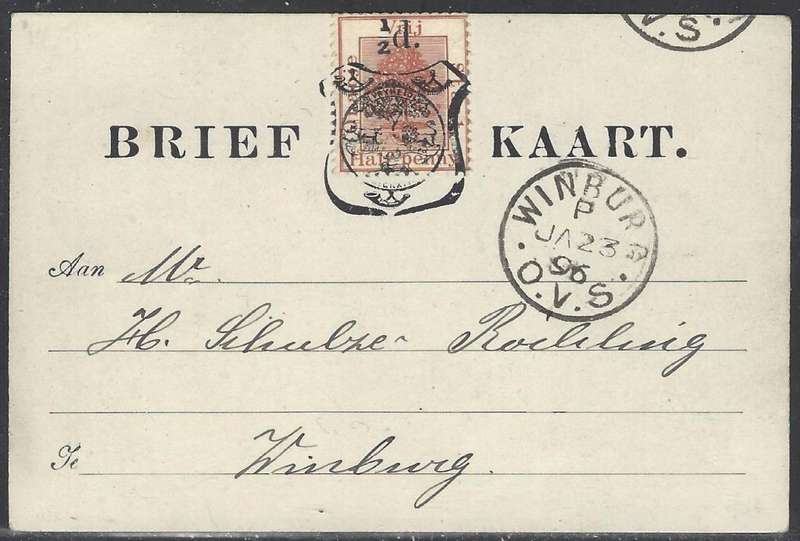 V.S.
½d.
Vrij
Half penny
BRIEF KAART.
WINBURG
P
JA 23
96
O.V.S.
Aan Mr.
H. Schulze Roehling
Te Winburg.